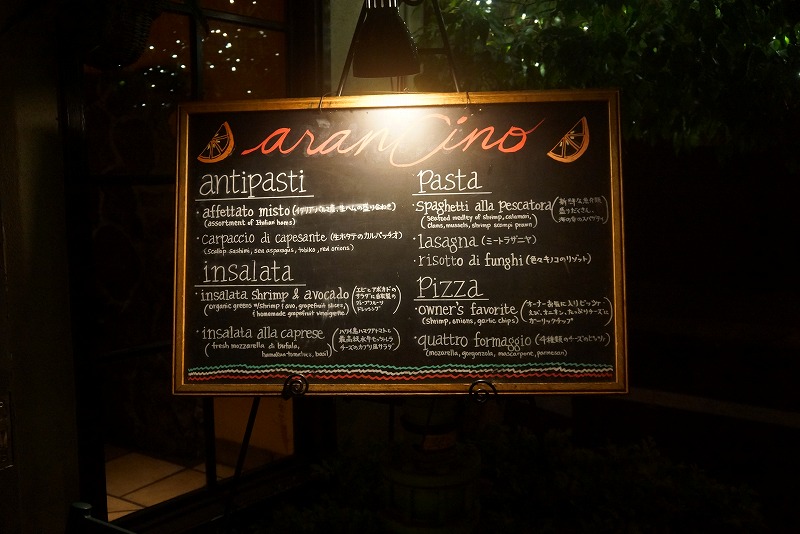 aranCino
antipasti
· affettato misto (イタリア・パルマ産、生ハムの盛り合わせ)
(assortment of Italian hams)
· carpaccio di capesante (生ホタテのカルパッチオ)
(scallop sashimi, sea asparagus, tobiko, red onions)
insalata
· insalata shrimp & avocado
(organic greens w/shrimp & avo, grapefruit slices,
homemade grapefruit vinaigrette)
(エビとアボカドの
サラダに自家製の
グレープフルーツ
ドレッシング)
· insalata alla caprese
(fresh mozzarella di bufala,
hamakua tomatoes, basil)
(ハワイ島ハマクアトマトと
最高級水牛モッツァレラ
チーズのカプリ風サラダ)
Pasta
· spaghetti alla pescatora
(seafood medley of shrimp, calamari,
clams, mussels, shrimp scampi prawn)
(新鮮な魚介類
盛りだくさん、
海の幸のスパゲティ)
· lasagna (ミートラザニヤ)
· risotto di funghi (色々キノコのリゾット)
Pizza
· owner's favorite
(shrimp, onions, garlic chips)
(オーナーお気に入りピッツァ・
えび、オニオン、たっぷりチーズに
ガーリックチップ)
· quattro formaggio (4種類のチーズのピッツァ)
(mozzarella, gorgonzola, mascarpone, parmesan)